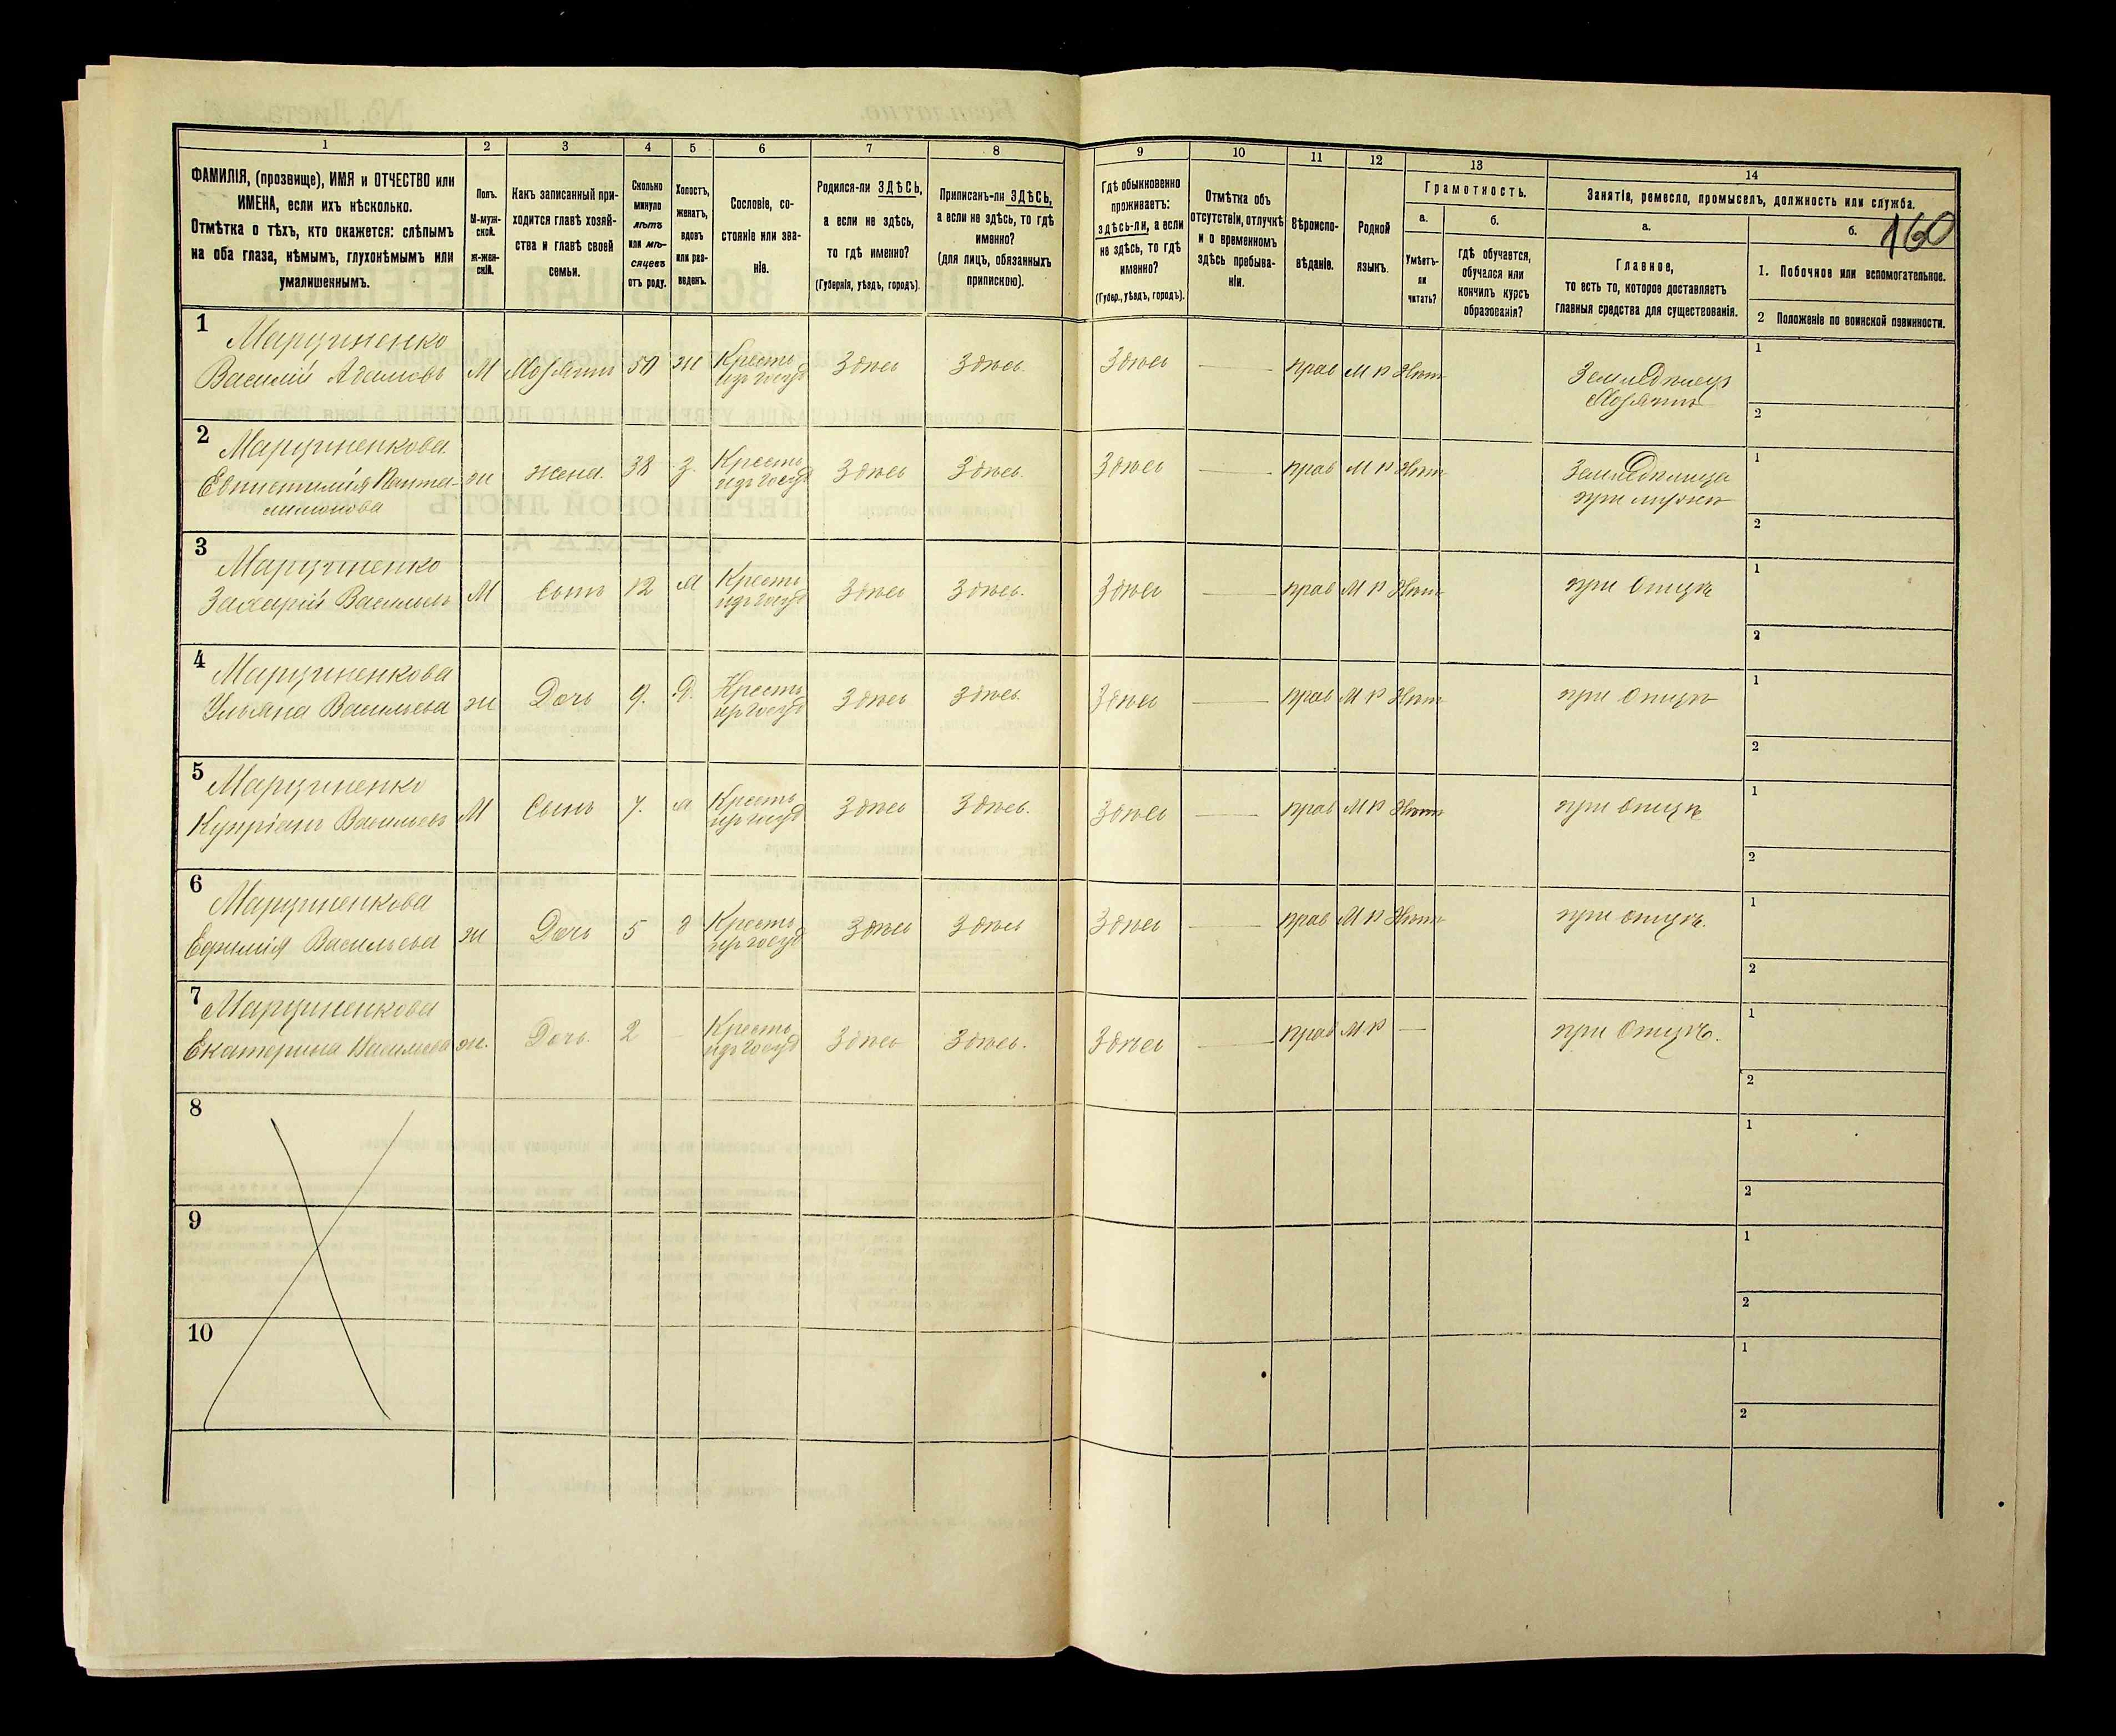 160
1
ФАМИЛІЯ, (прозвище), ИМЯ и ОТЧЕСТВО или ИМЕНА, если ихъ нѣсколько.
Отмѣтка о тѣхъ, кто окажется: слѣпымъ на оба глаза, нѣмымъ, глухонѣмымъ или умалишеннымъ.
2
Полъ.
М-мужской.
ж-женскій.
3
Какъ записанный приходится главѣ хозяйства и главѣ своей семьи.
4
Сколько минуло лѣтъ или мѣсяцевъ отъ роду.
5
Холостъ, женатъ, вдовъ или разведенъ.
6
Сословіе, состояніе или званіе.
7
Родился-ли ЗДѢСЬ, а если не здѣсь, то гдѣ именно?
(Губернія, уѣздъ, городъ).
8
Приписанъ-ли ЗДѢСЬ, а если не здѣсь, то гдѣ именно?
(для лицъ, обязанныхъ припискою).
9
Гдѣ обыкновенно проживаетъ: здѣсь-ли, а если не здѣсь, то гдѣ именно?
(Губер., уѣздъ, городъ).
10
Отмѣтка объ отсутствіи, отлучкѣ и о временномъ здѣсь пребываніи.
11
Вѣроисповѣданіе.
12
Родной языкъ.
13
Грамотность.
а.
Умѣетъ-ли читать?
б.
Гдѣ обучается, обучался или кончилъ курсъ образованія?
14
Занятіе, ремесло, промыселъ, должность или служба.
а.
Главное,
то есть то, которое доставляетъ главныя средства для существованія.
б.
1. Побочное или вспомогательное.
2 Положеніе по воинской повинности.
1 Марциненко Василій Адамовъ М Хозяинъ 50 ж Кресть изъ госуд Здѣсь Здѣсь Здѣсь — прав М Р Нѣт Земледѣлецъ Хозяинъ 1 2
2 Марциненкова ж жена 38 з. Кресть изъ госуд Здѣсь Здѣсь Здѣсь — прав М Р Нѣт при мужѣ 1 2
3 Марциненко Захарій Васильевъ М сынъ 12 Кресть изъ госуд Здѣсь Здѣсь. Здѣсь — прав М Р Нѣт при отцѣ 1 2
4 Марциненкова Ульяна Васильева ж Дочь 9. Д. Кресть изъ госуд Здѣсь Здѣсь Здѣсь — прав М Р Нѣт при отцѣ 1 2
5 Марциненко Купріанъ Васильевъ М Сынъ 7. Кресть изъ госуд Здѣсь Здѣсь. Здѣсь — прав М Р Нѣт при отцѣ 1 2
6 Марциненкова Ефимія Васильева ж Дочь 5 д Кресть изъ госуд Здѣсь Здѣсь Здѣсь — прав М Р Нѣт при отцѣ. 1 2
7 Марциненкова Екатерина Васильева ж. Дочь. 2 Кресть изъ госуд Здѣсь Здѣсь. Здѣсь — прав М Р — при отцѣ. 1 2
8 1 2
9 1 2
10 1 2